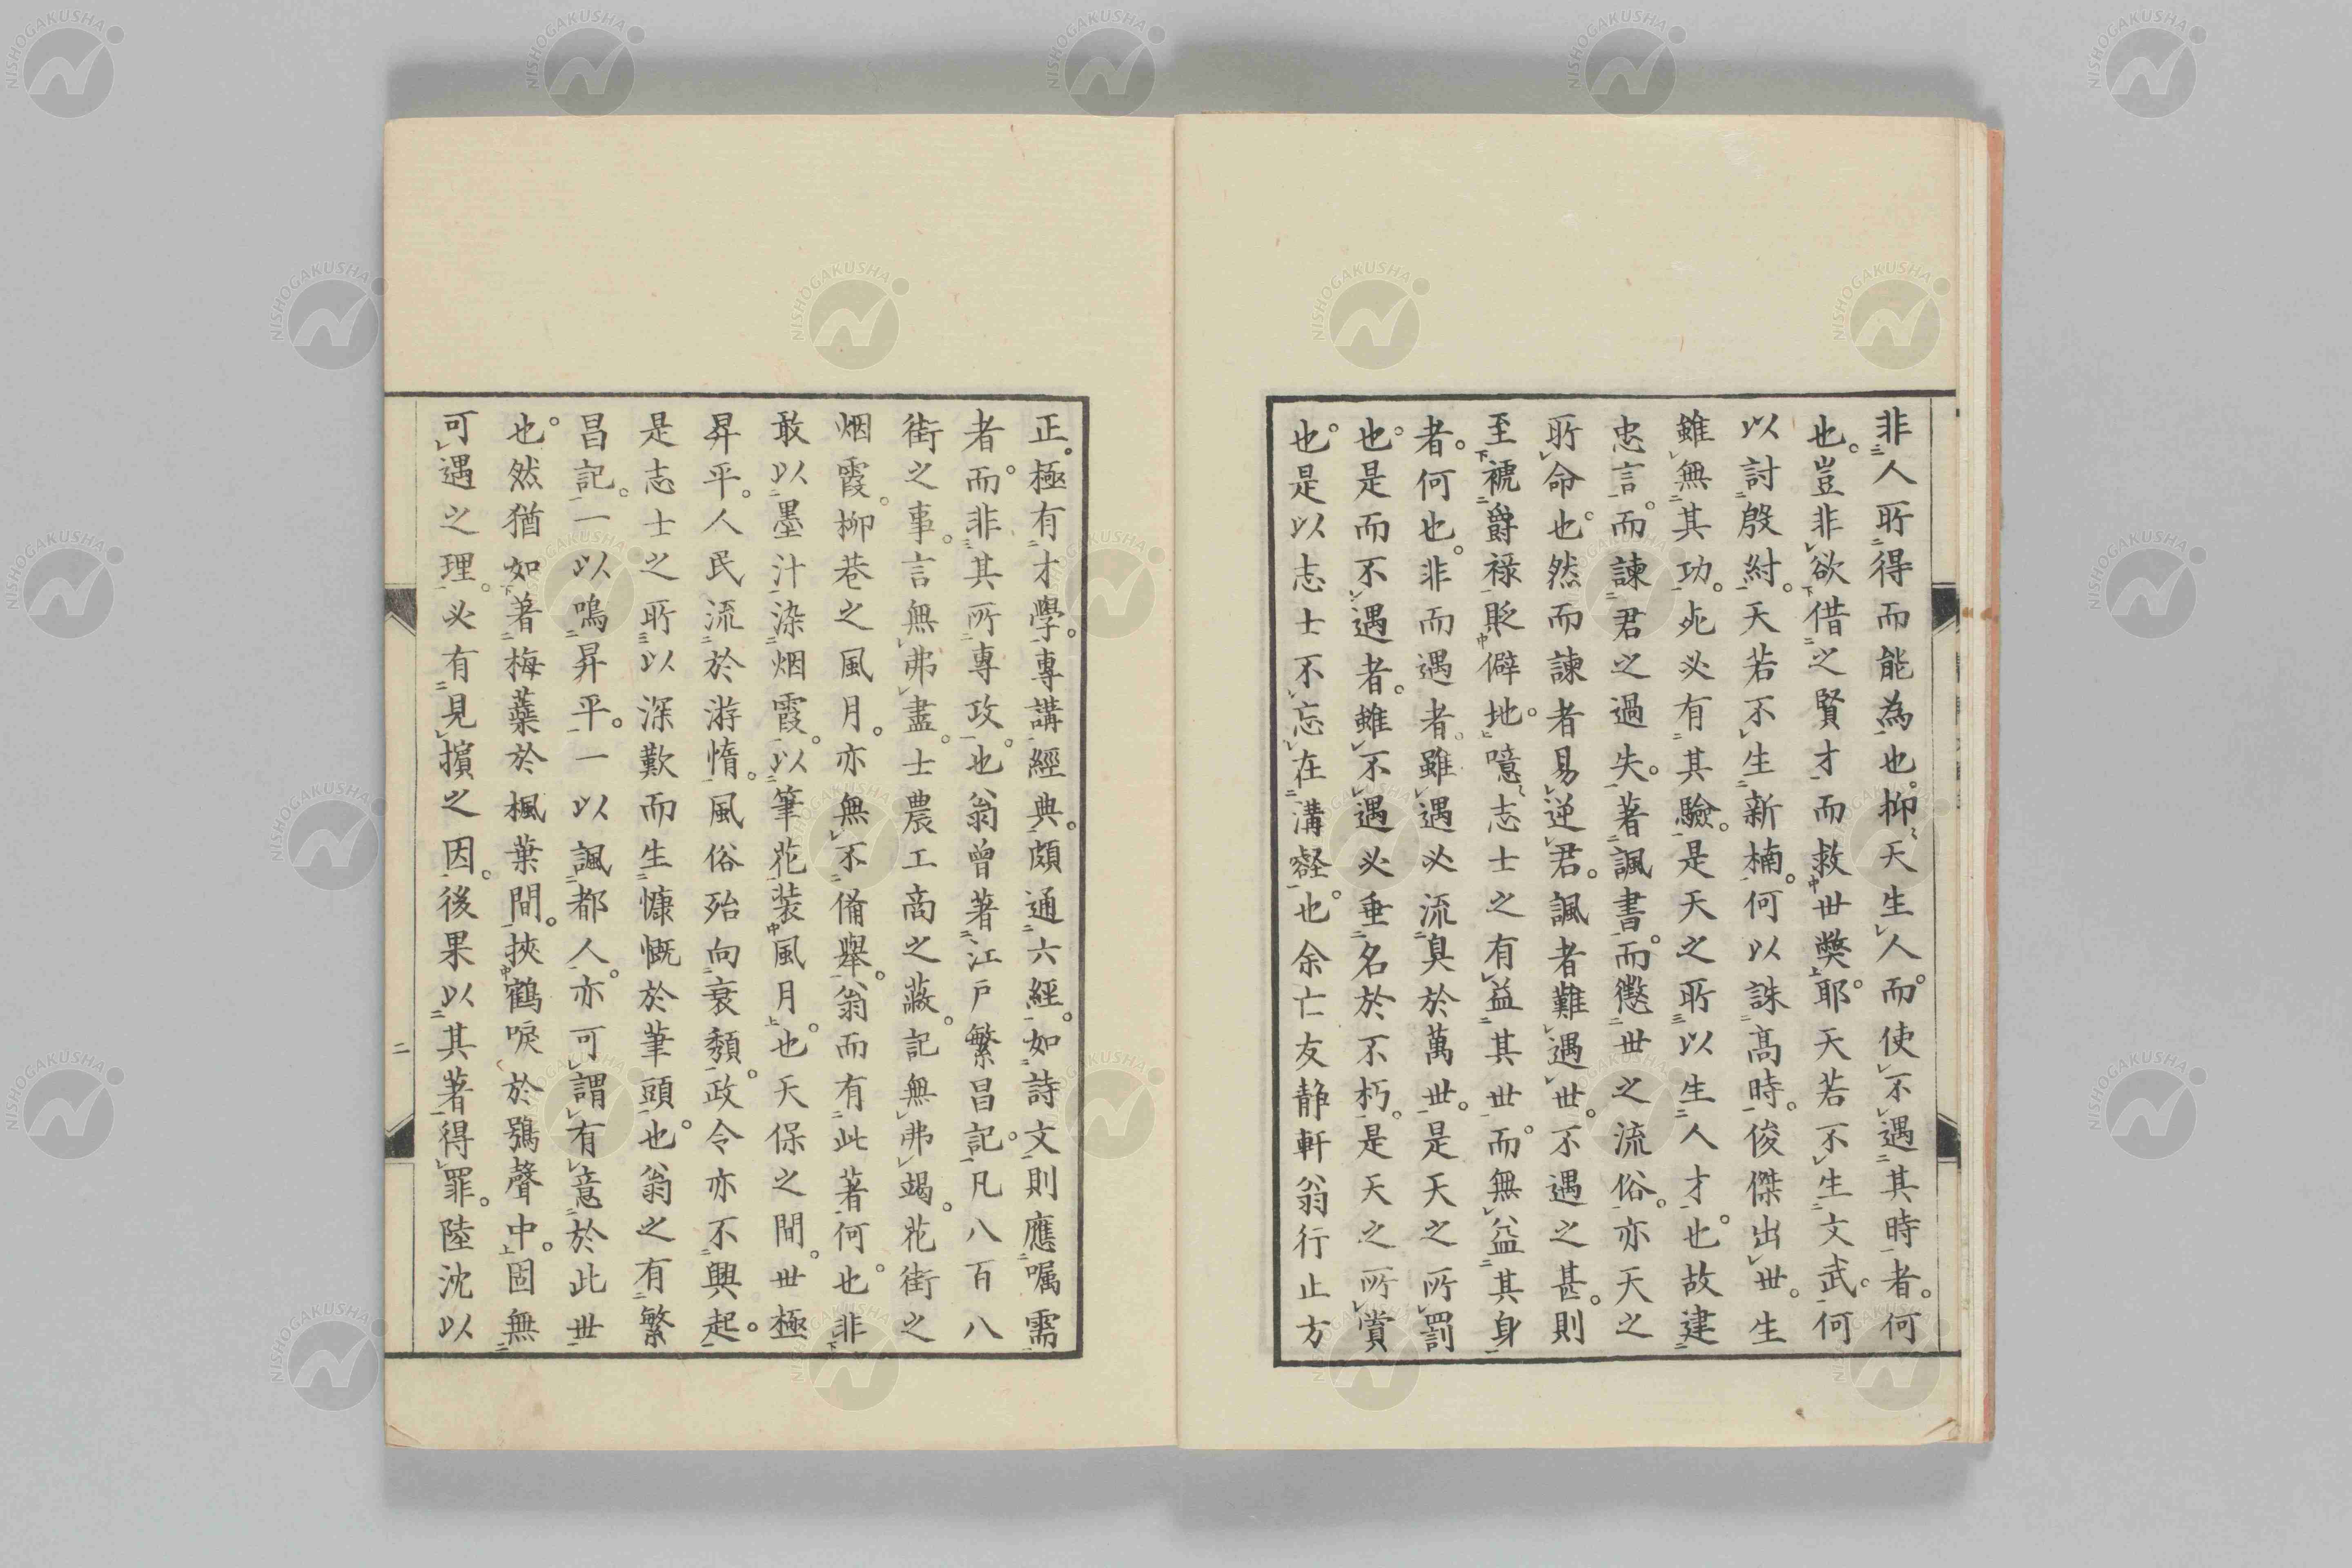 非人所得而能為也。抑天生人而。使不遇其時者。何
也。豈非欲借之賢才而救世弊耶。天若不生文武。何
以討殷紂。天若不生新楠。何以誅高時。俊傑出世。生
雖無其功。死必有其驗。是天之所以生人才也。故建
忠言。而諫君之過失。著諷書。而懲世之流俗。亦天之
所命也。然而諫者易逆君。諷者難遇世。不遇之甚。則
至褫爵祿貶僻地。噫志士之有益其世。而無益其身
者。何也。非而遇者。雖遇必流臭於萬世。是天之所罰
也。是而不遇者。雖不遇必垂名於不朽。是天之所賞
也。是以志士不忘在溝壑也。余亡友静軒翁行止方
正。極有才學。專講經典。頗通六經。如詩文則應嘱需
者。而非其所專攻也。翁曾著江戸繁昌記。凡八百八
街之事。言無弗盡。士農工商之蔽。記無弗竭。花街之
烟霞。柳巷之風月。亦無不備舉。翁而有此著何也。非
敢以墨汁染烟霞。以筆花装風月也。天保之間。世極
昇平。人民流於游惰。風俗殆向衰頽。政令亦不興起。
是志士之所以深歎而生慷慨於筆頭也。翁之有繁
昌記。一以鳴昇平。一以諷都人。亦可謂有意於此世
也。然猶如著梅蘂於楓葉間。挾鶴唳於鴉聲中。固無
可遇之理。必有見擯之因。後果以其著得罪。陸沈以
二
NISHOGAKUSHA